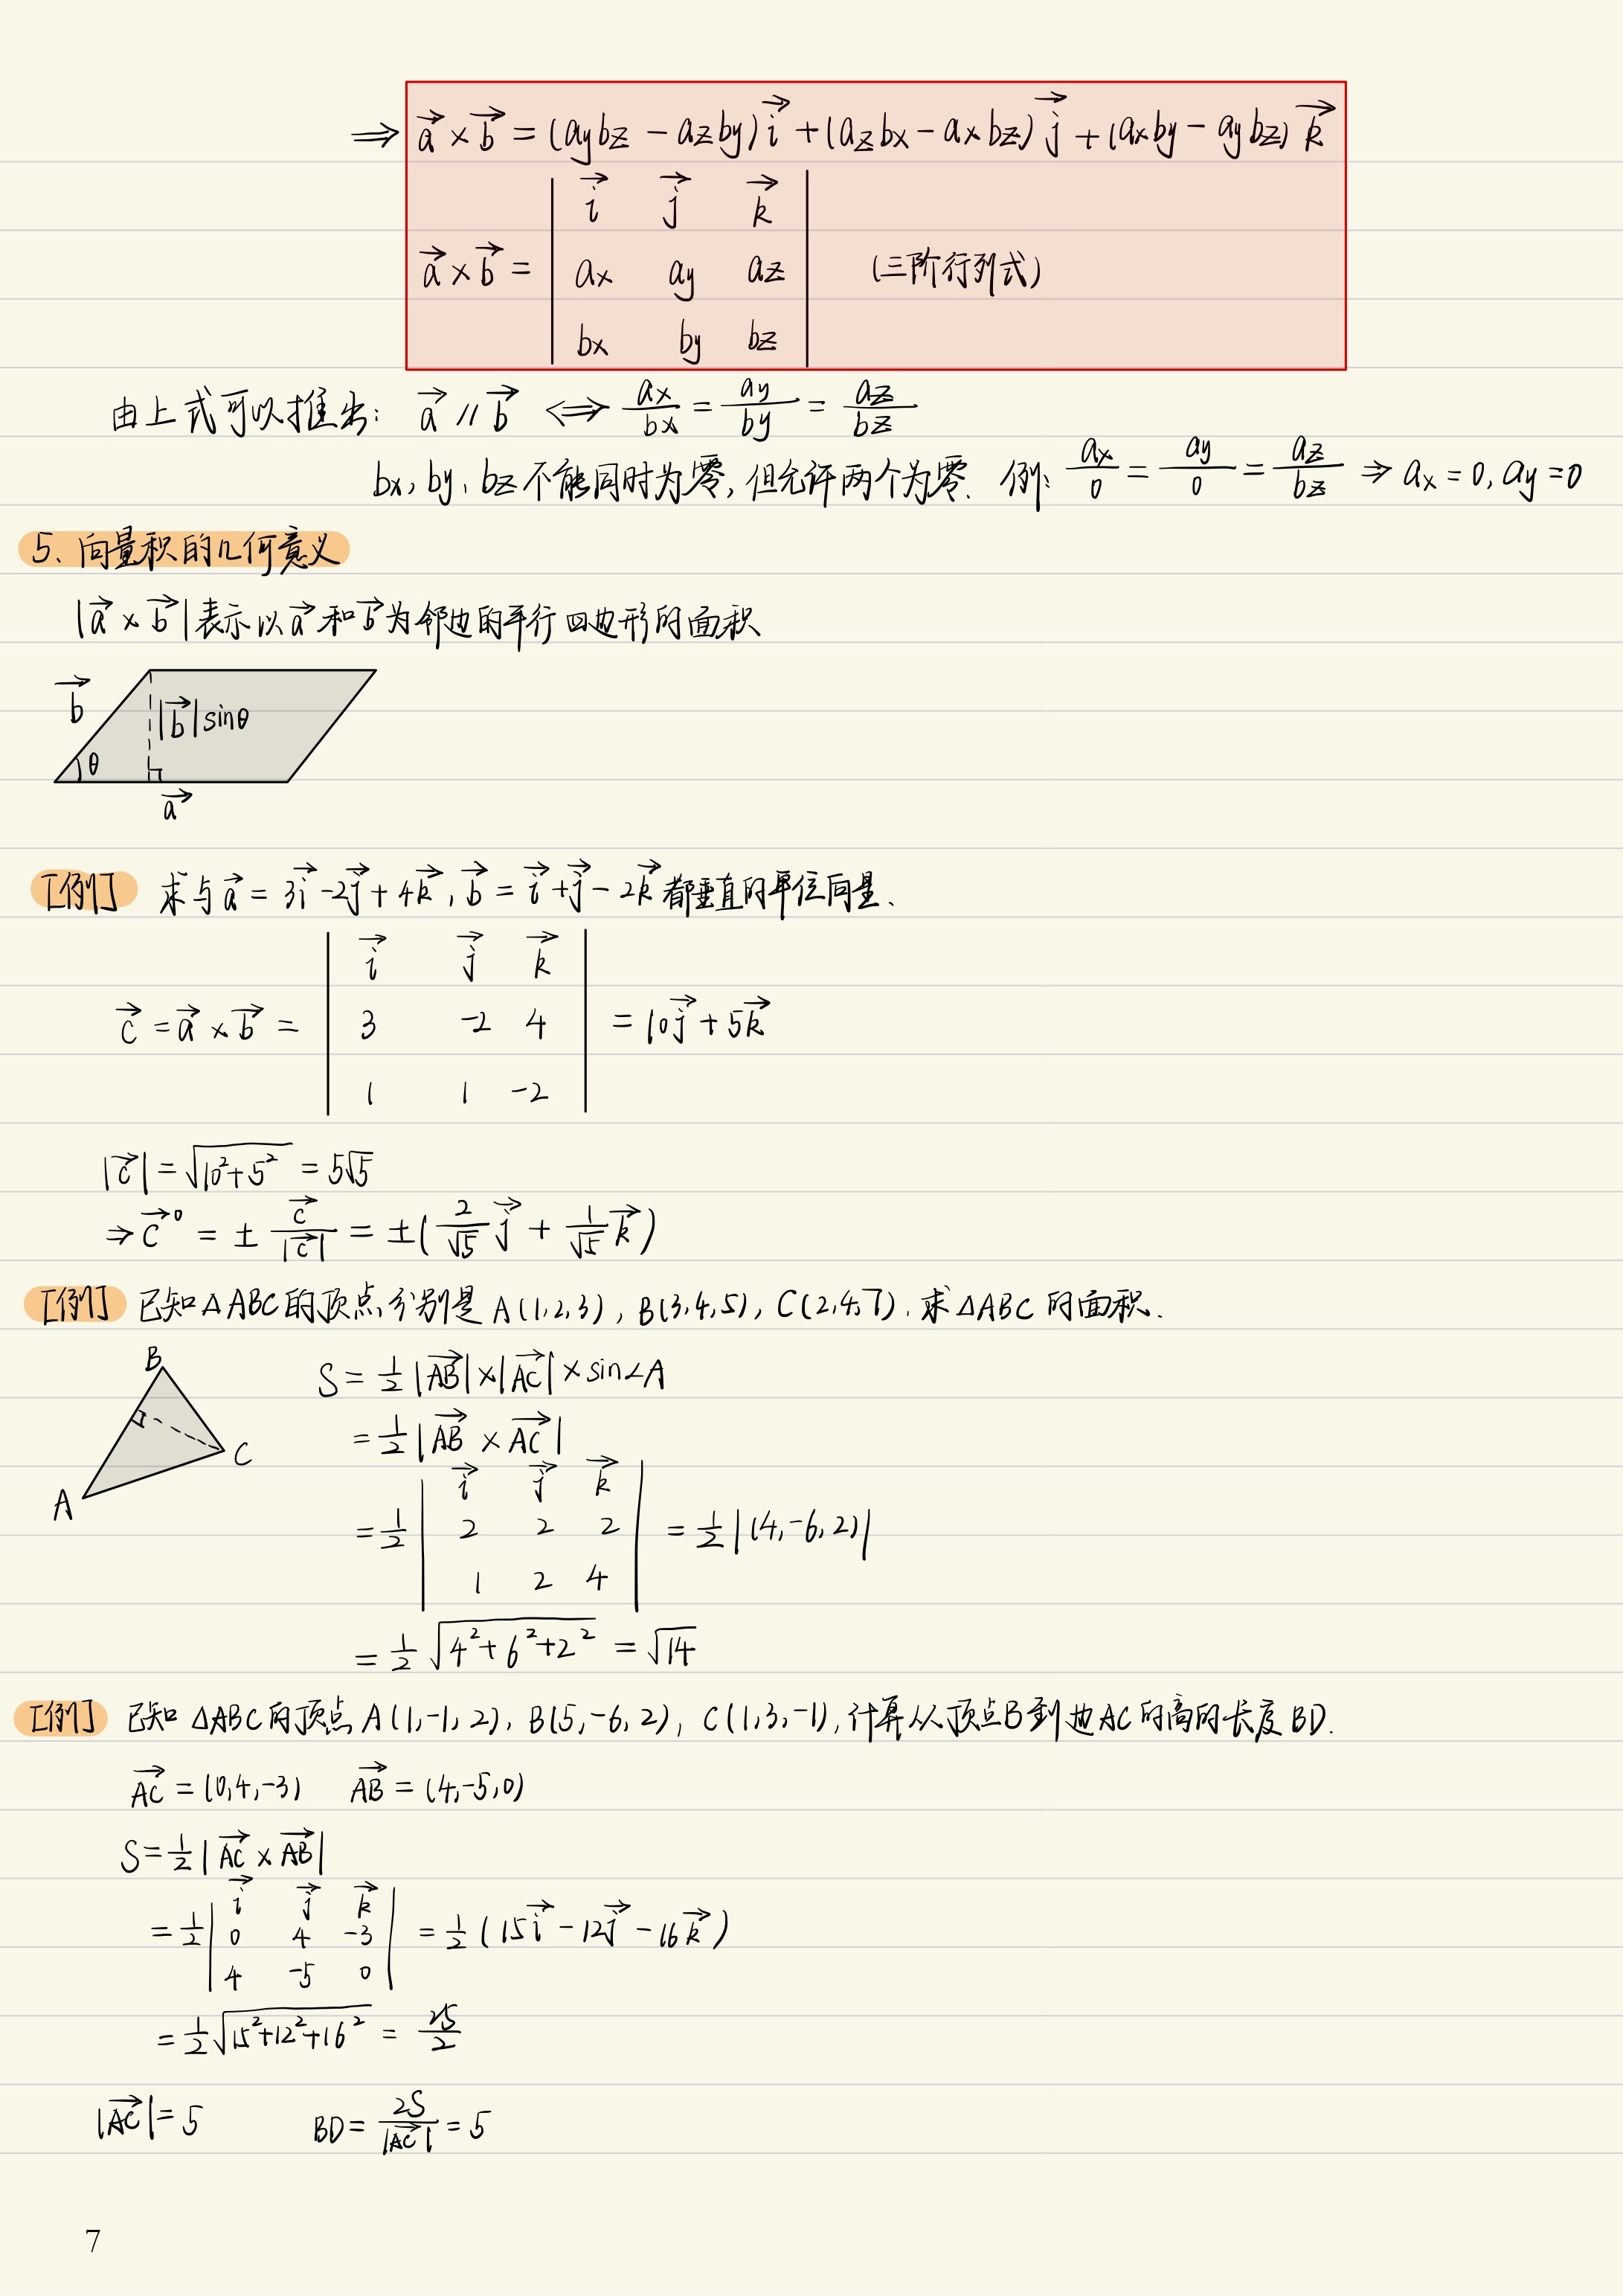 ⇒ a⃗ × b⃗ = (aybz - azby) i⃗ + (azbx - axbz) j⃗ + (axby - aybz) k⃗
a⃗ × b⃗ = | i⃗ j⃗ k⃗ |
| ax ay az | (三阶行列式)
| bx by bz |
由上式可以推出: a⃗ // b⃗ ⟺ ax/bx = ay/by = az/bz
bx, by, bz 不能同时为零, 但允许两个为零. 例: ax/0 = ay/0 = az/bz ⇒ ax = 0, ay = 0
5、向量积的几何意义
|a⃗ × b⃗| 表示以 a⃗ 和 b⃗ 为邻边的平行四边形的面积
b⃗
|b⃗| sinθ
θ
a⃗
[例] 求与 a⃗ = 3i⃗ - 2j⃗ + 4k⃗, b⃗ = i⃗ + j⃗ - 2k⃗ 都垂直的单位向量.
c⃗ = a⃗ × b⃗ = | i⃗ j⃗ k⃗ |
| 3 -2 4 | = 10j⃗ + 5k⃗
| 1 1 -2 |
|c⃗| = √(10²+5²) = 5√5
⇒ c⃗° = ± c⃗/|c⃗| = ±(2/√5 j⃗ + 1/√5 k⃗)
[例] 已知△ABC的顶点分别是 A(1,2,3), B(3,4,5), C(2,4,7). 求△ABC的面积.
B
C
A
S = 1/2 |AB⃗| × |AC⃗| × sin∠A
= 1/2 |AB⃗ × AC⃗|
= 1/2 | i⃗ j⃗ k⃗ |
| 2 2 2 | = 1/2 |(4,-6,2)|
| 1 2 4 |
= 1/2 √(4²+6²+2²) = √14
[例] 已知 △ABC的顶点 A(1,-1,2), B(5,-6,2), C(1,3,-1), 计算从顶点B到边AC的高的长度BD.
AC⃗ = (0,4,-3) AB⃗ = (4,-5,0)
S = 1/2 |AC⃗ × AB⃗|
= 1/2 | i⃗ j⃗ k⃗ |
| 0 4 -3 | = 1/2 (15i⃗ - 12j⃗ - 16k⃗)
| 4 -5 0 |
= 1/2 √(15²+12²+16²) = 25/2
|AC⃗| = 5 BD = 2S/|AC⃗| = 5
7